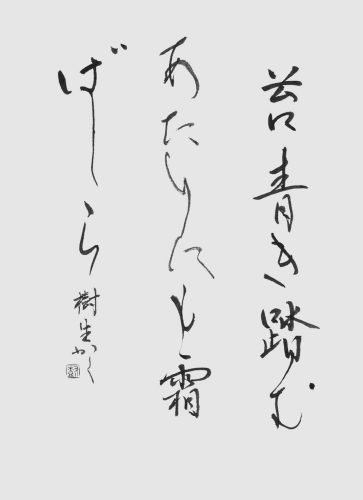 苔青き踏む
あたりにも霜
ばしら
樹生かく